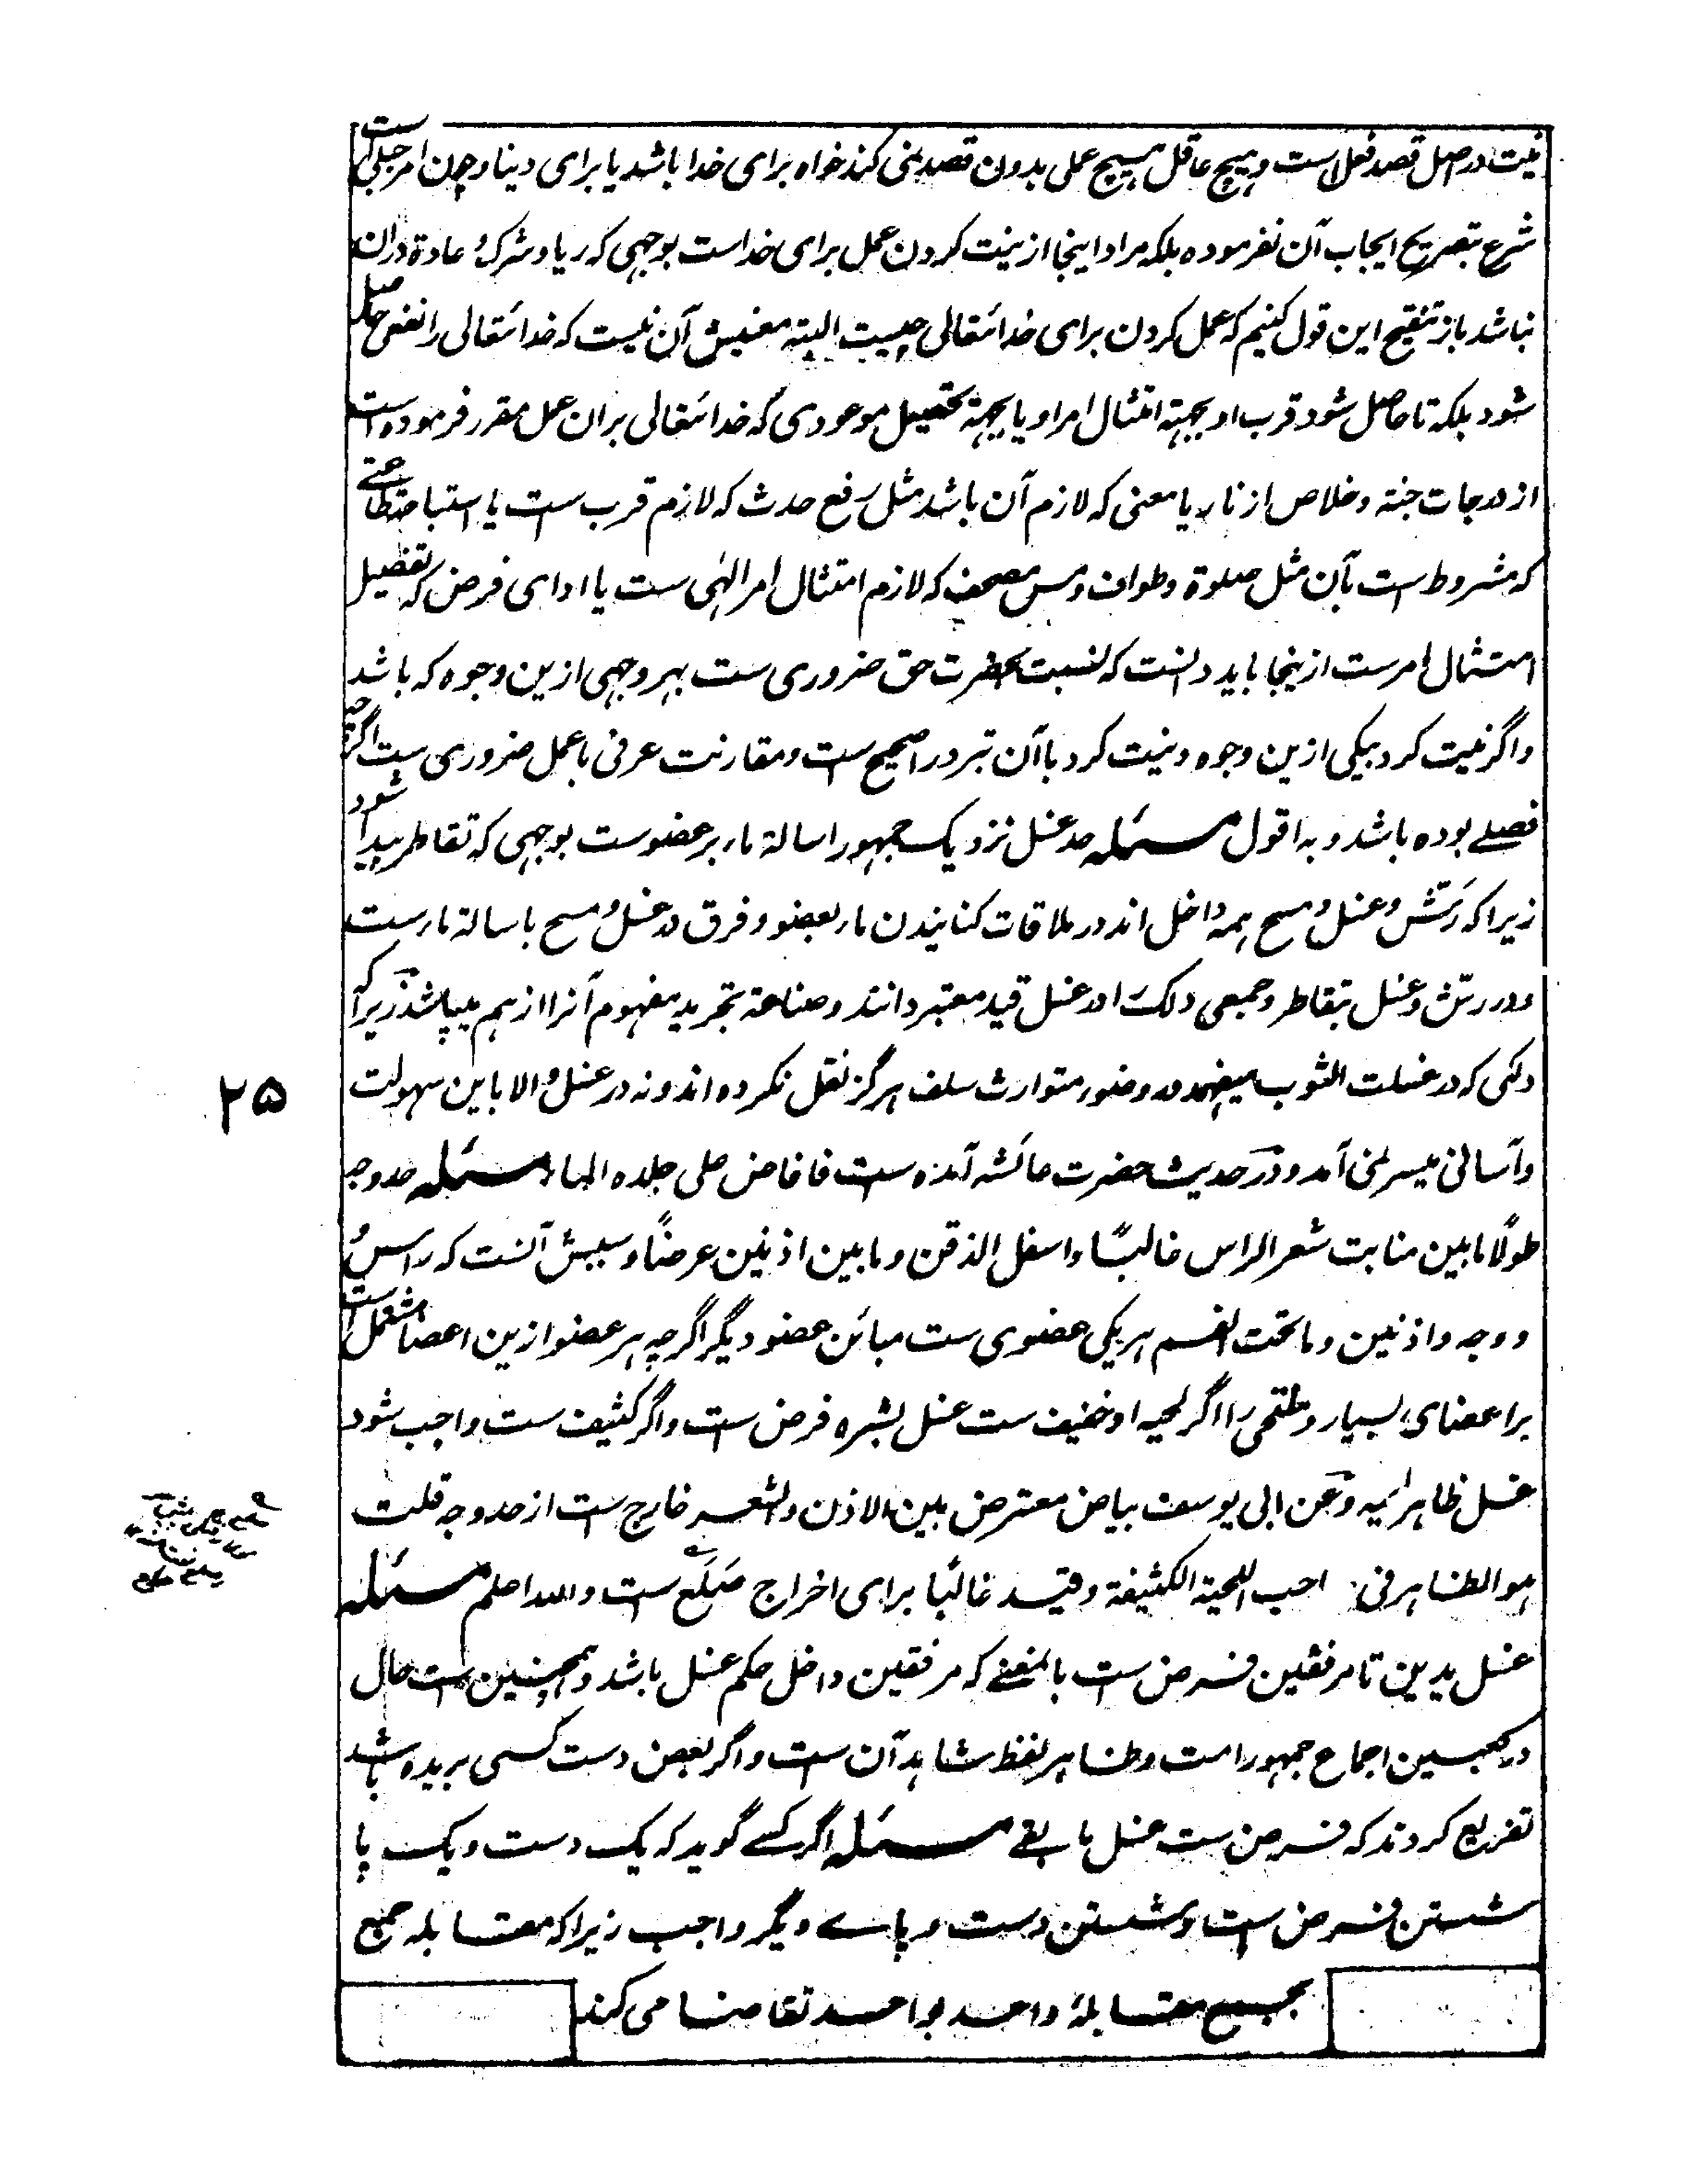 نیت در اصل قصد فعل است و هیچ عاقل هیچ عملی بدون قصد نمی کند خواه برای خدا باشد یا برای دنیا و چون امر جبلی است
شرع بتصریح ایجاب آن نفرموده بلکه مراد اینجا از نیت کردن عمل برای خداست بوجهی که ریا و شرک عادة دران
نباشد باز تنقیح این قول کنیم که عمل کردن برای خدائتعالی چیست البته معنیش آن نیست که خدائتعالی را نفعی حاصل
شود بلکه تا حاصل شود قرب او بجهة امتثال امر او یا بجهة تحصیل موعودی که خدائتعالی بران عمل مقرر فرموده است
از درجات جنة و خلاص از نار یا معنی که لازم آن باشد مثل رفع حدث که لازم قرب ست یا استباحت طاعتے
که مشروط ست بآن مثل صلوة و طواف و مس مصحف که لازم امتثال امر الٰهی ست یا ادای فرض که تفصیل
امتثال امرست ازینجا باید دانست که نسبت بحضرت حق ضروری ست بهر وجهی ازین وجوه که باشد
و اگر نیت کرد بیکی ازین وجوه و نیت کرد با آن تبرد را صحیح ست و مقارنت عرفی با عمل ضروری ست اگرچه
فصلے بوده باشد و به اقول مسئله حد غسل نزدیک جمهور اسالة ماء بر عضوست بوجهی که تقاطر پیدا شود
زیرا که رَشّ و غسل و مسح همه داخل اند در ملاقات کنانیدن ماء بعضو و فرق در غسل و مسح باسالة ماءست
و در رشّ و غسل بتقاطر و جمعی دلک را در غسل قید معتبر دانند و صناعة تجرید مفهوم آنرا از هم میپاشد زیرا که
دلکی که در غسلت الثوب میفهمند در وضوء متوارث سلف هرگز نقل نکرده اند و نه در غسل والا باین سهولت
۲۵
و آسانی میسر نمی آمد و در حدیث حضرت عائشه آمده ست فافاض علی جلده الماء مسئله حد وجه
طولًا مابین منابت شعر الراس غالبًا و اسفل الذقن و مابین اذنین عرضًا و سببش آنست که راس
و وجه و اذنین و ما تحت الفم هر یکی عضوی ست مبائن عضو دیگر اگرچه هر عضو ازین اعضا مشتمل است
بر اعضای بسیار و ملتحی را اگر لحیه او خفیف ست غسل بشره فرض ست و اگر کثیف ست واجب شود
غسل ظاهر لحیه و عن ابی یوسف بیاض معترض بین الاذن والشعر خارج ست از حد وجه قلت
هو الظاهر فی احب اللحیة الکثیفة و قید غالبًا برای اخراج صَلَع ست والله اعلم مسئله
غسل یدین تا مرفقین فرض ست بالمعنے که مرفقین داخل حکم غسل باشد و همچنین ست حال
در کعبین اجماع جمهور امت و ظاهر لفظ شاهد آن ست و اگر بعض دست کسی بریده باشد
تفریع کردند که فرض ست غسل ما بقے مسئله اگر کسے گوید که یک دست و یک پا
شستن فرض ست و شستن دست و پاے دیگر واجب زیرا که مقابله جمیع
بجمیع مقابلۀ واحد بواحد تقاضا می کند